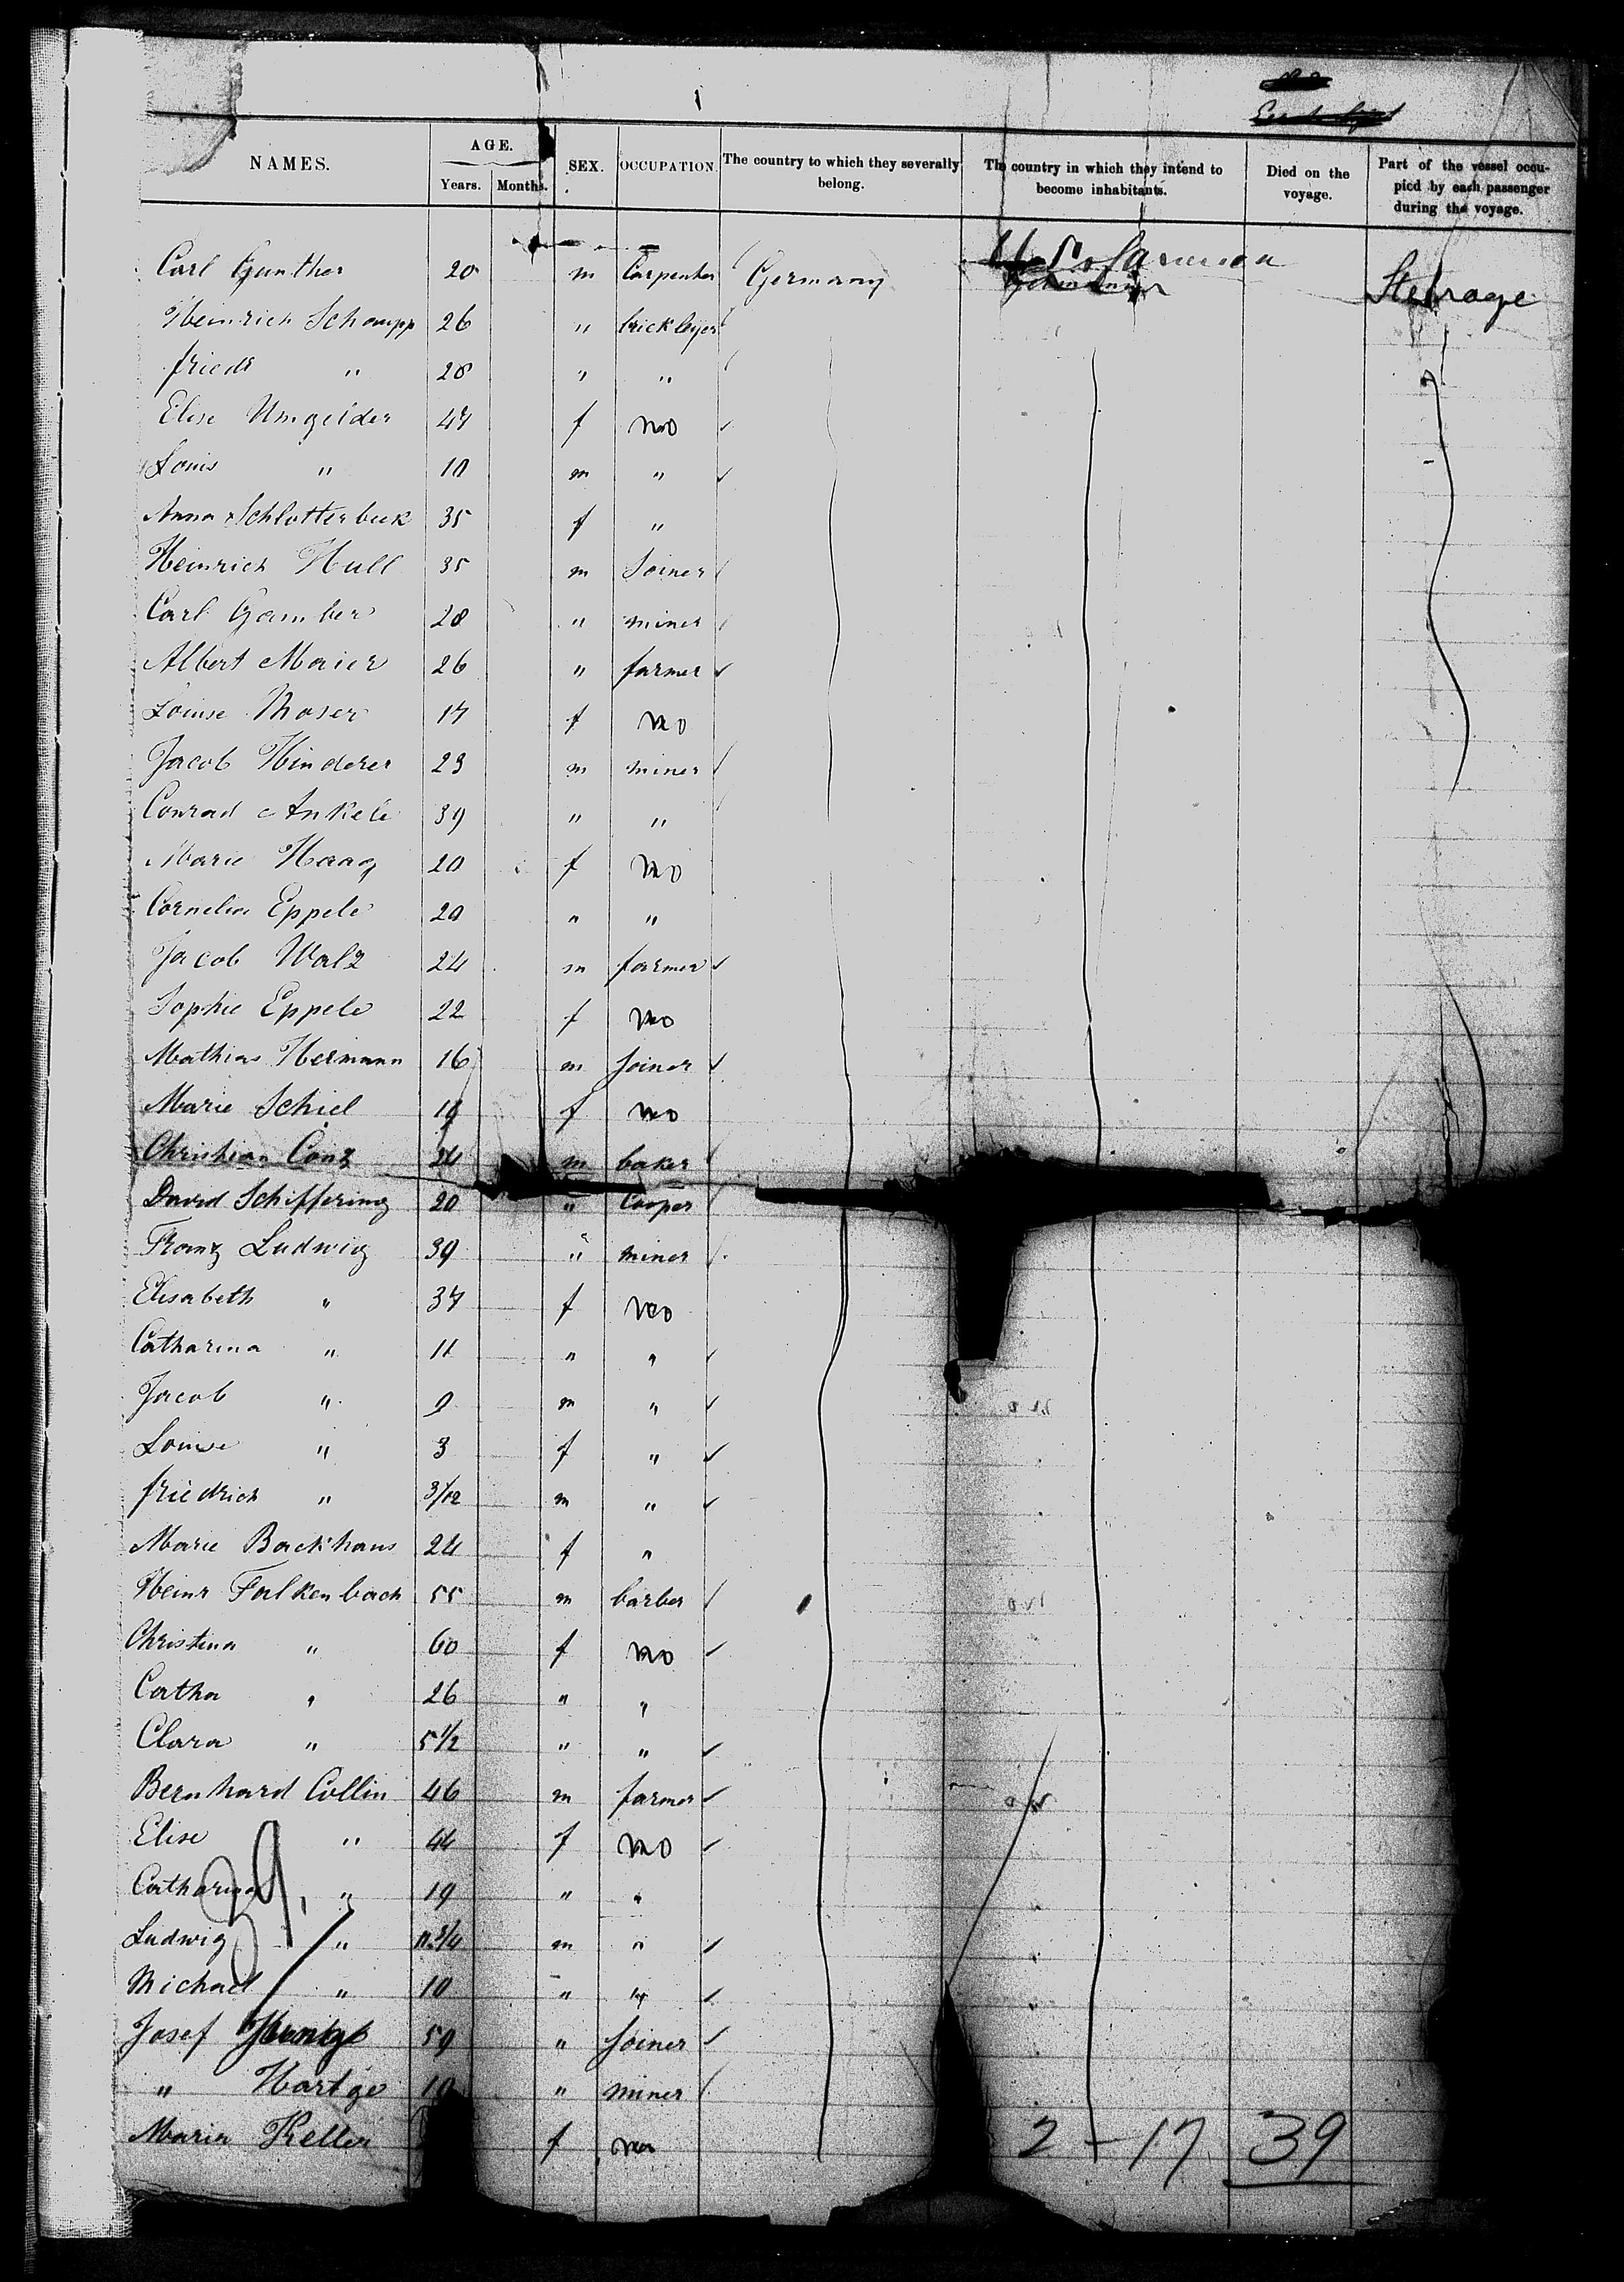 NAMES. AGE. Years. Months. SEX. OCCUPATION. The country to which they severally belong. The country in which they intend to become inhabitants. Died on the voyage. Part of the vessel occupied by each passenger during the voyage.
Carl Gunther 20 m Carpenter Germany Steerage
Heinrich Schampp 26 " bricklyer
friedr " 28 " "
Elise Umgelder 47 f no
Louis " 10 m "
Anna Schlotterbeck 35 f "
Heinrich Hull 35 m Joiner
Carl Gamber 28 " miner
Albert Maier 26 " farmer
Louise Moser 17 f no
Jacob Hinderer 23 m miner
Conrad Ankele 39 " "
Marie Haag 20 f no
Cornelia Eppele 20 " "
Jacob Walz 24 m farmer
Sophie Eppele 22 f no
Mathias Hermann 16 m Joiner
Marie Schiel 19 f no
Christian Conz 24 m baker
David Schiffering 20 " Cooper
Franz Ludwig 39 " miner
Elisabeth " 37 f no
Catharina " 11 " "
Jacob " 9 m "
Louise " 3 f "
friedrich " 3/12 m "
Marie Backhaus 24 f "
Heinr Falkenbach 55 m barber
Christina " 60 f no
Catha " 26 " "
Clara " 5 1/2 " "
Bernhard Collin 46 m farmer
Elise " 44 f no
Catharina " 19 " "
Ludwig " 11 3/4 m "
Michael " 10 " "
Josef 59 " Joiner
" Hartge " miner
Maria Keller f no
39
2 - 17 39